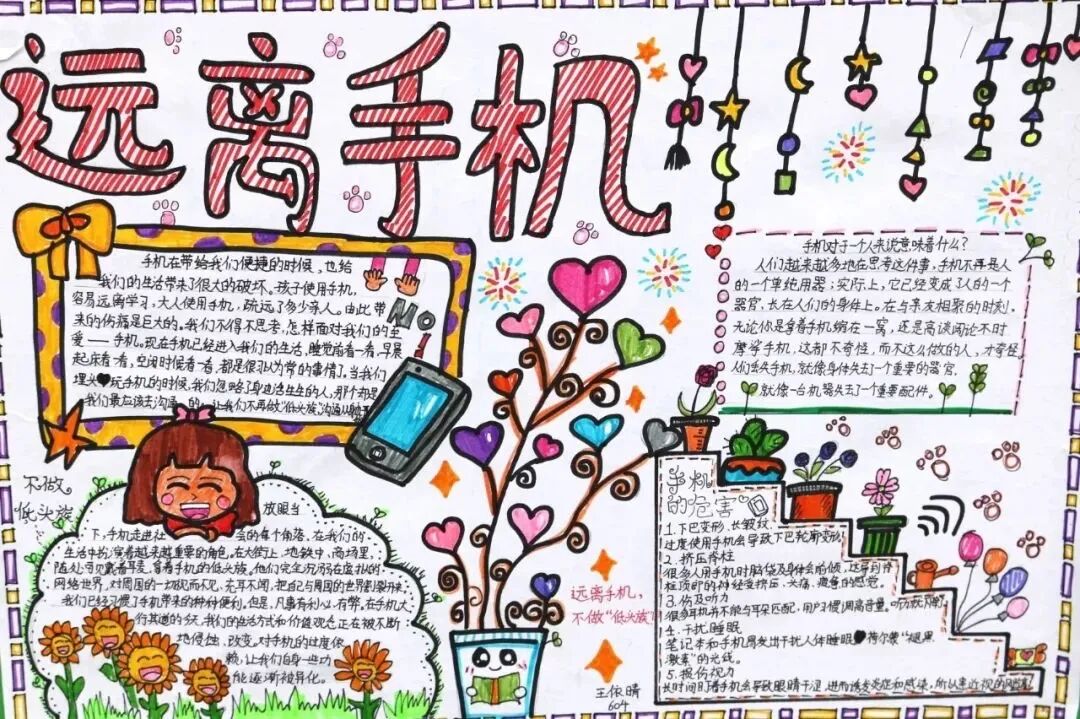 远离手机
手机在带给我们便捷的时候，也给
我们的生活带来了很大的破坏。孩子使用手机，
容易远离学习，大人使用手机，疏远了多少亲人。由此带
来的伤痛是巨大的。我们不得不思考，怎样面对我们的至
爱——手机。现在手机已经进入我们的生活，睡觉前看一看，早晨
起床看一看，空闲时候看一看，都是很以为常的事情了。当我们
埋头玩手机的时候，我们忽略了身边活生生的人，那个却是
我们最应该去沟通的。让我们不再做"低头族"
No!
手机对于一个人来说意味着什么？
人们越来越多地在思考这件事，手机不再是人
的一个单纯用器；实际上，它已经变成了人的一个
器官，长在人们的身件上。在与亲友相聚的时刻，
无论你是拿着手机蜗在一窝，还是高谈阔论不时
摩挲手机，这都不奇怪，而不这么做的人，才奇怪
人们丢失手机，就像身体失去了一个重要的器官，
就像一台机器失去了一个重要配件。
不做。
低头族
放眼当
下，手机走进社会的每个角落，在我们的
生活中扮演着越来越重要的角色。在大街上、地铁中、商场里，
随处可见戴着耳麦、拿着手机的低头族，他们完全沉溺在虚拟的
网络世界，对周围的一切视而不见，充耳不闻，把自己与周围的世界割裂开来。
我们已经习惯了手机带来的种种便利。但是，凡事有利必有弊，在手机大
行其道的今天，我们的生活方式和价值观念正在被不断
地侵蚀、改变。对手机的过度依
赖，让我们自身一些功
能逐渐被异化。
手机
的危害
1.下巴变形，长皱纹
过度使用手机会导致下巴轮廓变形
2.挤压脊柱
很多人用手机时脑袋及身体会前倾，这导致脊
柱顶部的神经受挤压，头痛、疲惫的感觉。
3.伤及听力
很多耳机并不能与耳朵匹配，用户习惯调高音量，听力
4.干扰睡眠
笔记本和手机易发出干扰人体睡眠荷尔蒙"褪黑
激素"的光线。
5.损伤视力
长时间盯着手机会导致眼睛干涩，进而诱发炎症和感染，所以患近视的风险
远离手机，
不做"低头族"！
王依晴
604